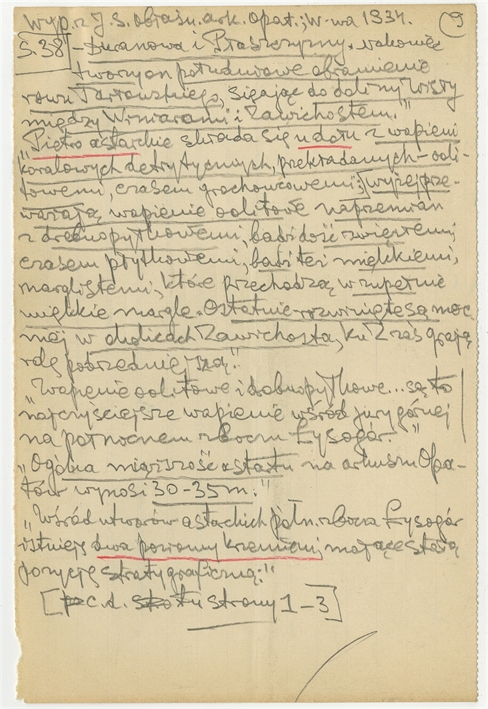 Wyp. z J. S. objaśn. ark. Opat.; W-wa 1934. 9
S.38 - Duranowa i Ptaszczyzny. wakoniec
tworzy on południowe obramienie
rowu Tarłowskiego, sięgając do doliny Wisły
między Winiarami i Zawichostem."
"Piętro astarckie składa się u dołu z wapieni
koralowych detrytycznych, przekładanych - ooli-
towemi, czasem grochowcowemi; wyżej prze-
ważają wapienie oolitowe naprzemian
z drobnopłytkowemi, bądź dość zwięzłemi,
czasem płytkowemi, bądź też miękkiemi,
marglistemi, które przechodzą w zupełnie
miękkie margle. Ostatnie rozwinięte są moc-
niej w okolicach Zawichosta, ku Z zaś grają
rolę podrzędniejszą."
"Wapienie oolitowe i drobnopłytkowe... są to
najczyściejsze wapienie wśród jury górnej
na północnem zboczu Łysogór."
"Ogólna miąższość astartu na arkuszu Opa-
tów wynosi 30-35 m."
"Wśród utworów astarckich półn. zbocza Łysogór
istnieją dwa poziomy krzemieni, mające stałą
pozycję stratygraficzną:"
[c.d. u dołu strony 1-3]